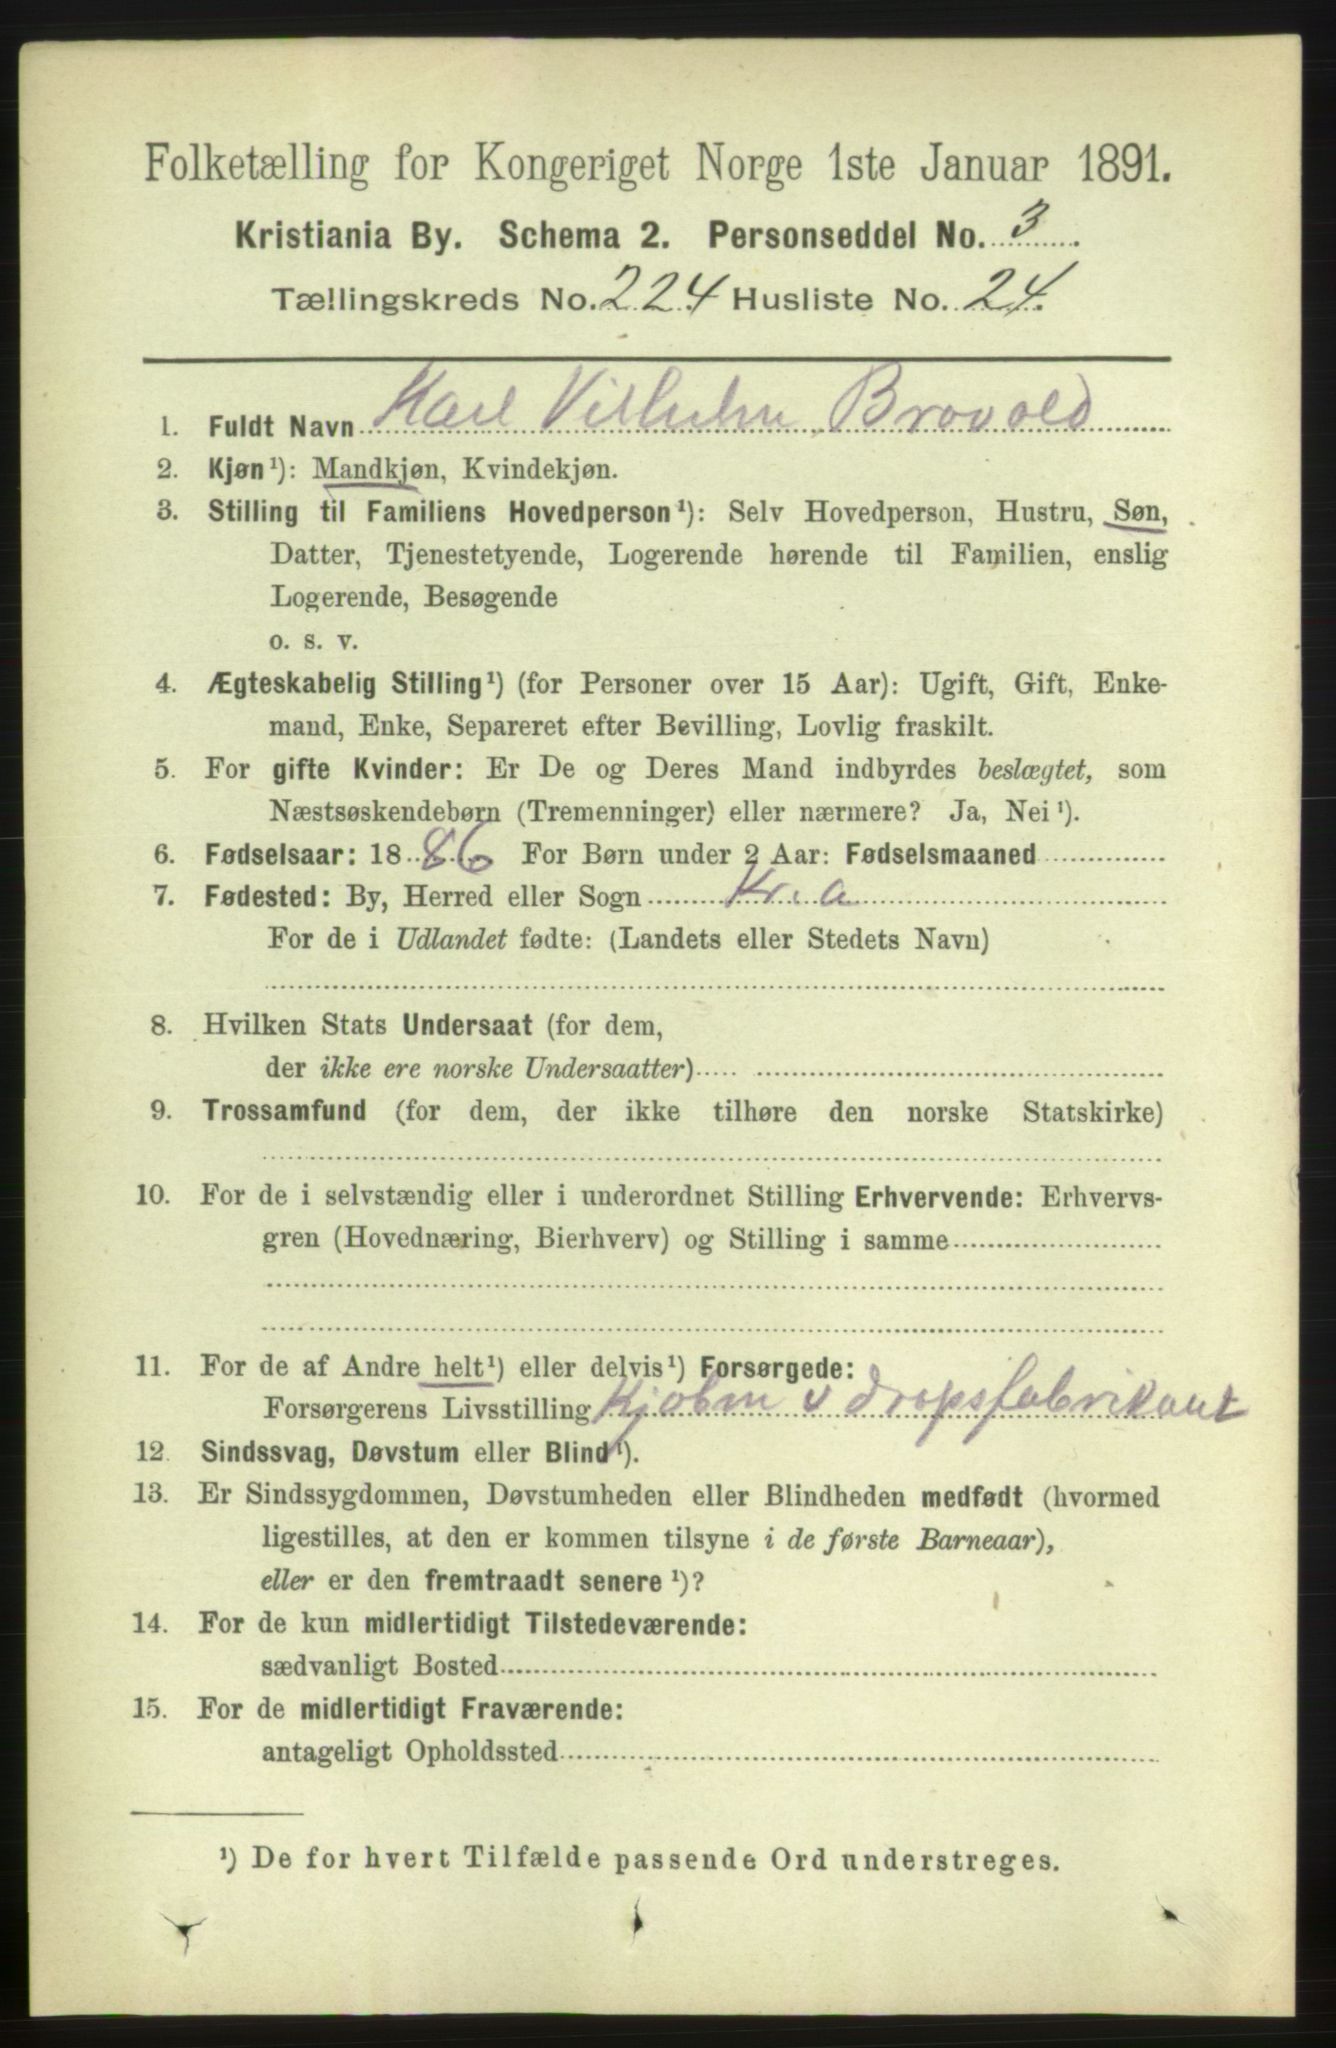 Folketælling for Kongeriget Norge 1ste Januar 1891.
Kristiania By. Schema 2. Personseddel No. 3
Tællingskreds No. 224 Husliste No. 24.
1. Fuldt Navn Karl Vilhelm Brovold
2. Kjøn¹): Mandkjøn, Kvindekjøn.
3. Stilling til Familiens Hovedperson¹): Selv Hovedperson, Hustru, Søn,
Datter, Tjenestetyende, Logerende hørende til Familien, enslig
Logerende, Besøgende
o. s. v.
4. Ægteskabelig Stilling¹) (for Personer over 15 Aar): Ugift, Gift, Enke-
mand, Enke, Separeret efter Bevilling, Lovlig fraskilt.
5. For gifte Kvinder: Er De og Deres Mand indbyrdes beslægtet, som
Næstsøskendebørn (Tremenninger) eller nærmere? Ja, Nei¹).
6. Fødselsaar: 1886 For Børn under 2 Aar: Fødselsmaaned
7. Fødested: By, Herred eller Sogn Kr.a
For de i Udlandet fødte: (Landets eller Stedets Navn)
8. Hvilken Stats Undersaat (for dem,
der ikke ere norske Undersaatter)
9. Trossamfund (for dem, der ikke tilhøre den norske Statskirke)
10. For de i selvstændig eller i underordnet Stilling Erhvervende: Erhvervs-
gren (Hovednæring, Bierhverv) og Stilling i samme
11. For de af Andre helt¹) eller delvis¹) Forsørgede:
Forsørgerens Livsstilling Kjøbm & Dropsfabrikant
12. Sindssvag, Døvstum eller Blind¹).
13. Er Sindssygdommen, Døvstumheden eller Blindheden medfødt (hvormed
ligestilles, at den er kommen tilsyne i de første Barneaar),
eller er den fremtraadt senere¹)?
14. For de kun midlertidigt Tilstedeværende:
sædvanligt Bosted
15. For de midlertidigt Fraværende:
antageligt Opholdssted
¹) De for hvert Tilfælde passende Ord understreges.